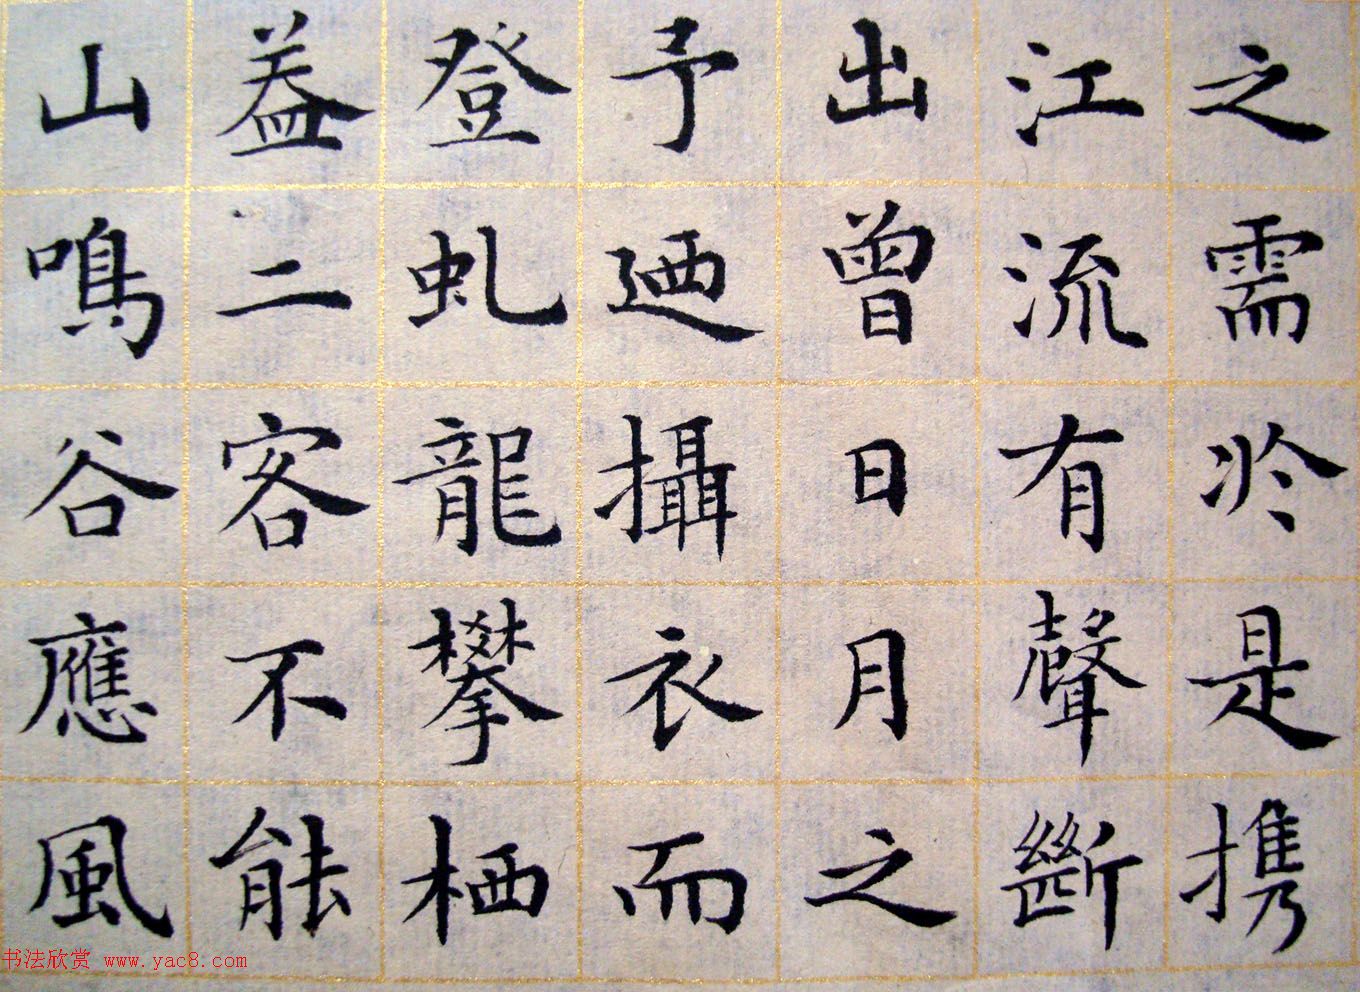 之需於是携
江流有聲斷
出曾日月之
予廼攝衣而
登虬龍攀栖
益二客不能
山鳴谷應風
书法欣赏 www.yac8.com